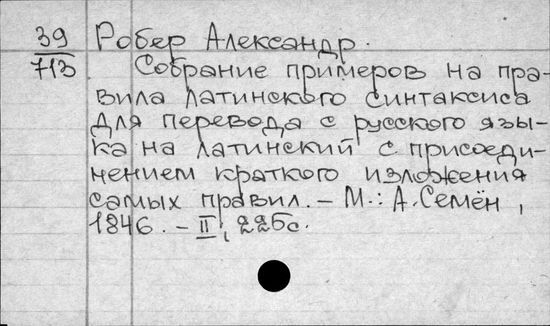 39 Робер Александр.
713 Собрание примеров на пра-
вила латинского синтаксиса
для перевода с русского язы-
ка на латинский с присоеди-
нением краткого изложения
самых правил. – М.: А. Семён,
1846. – II, 225с.